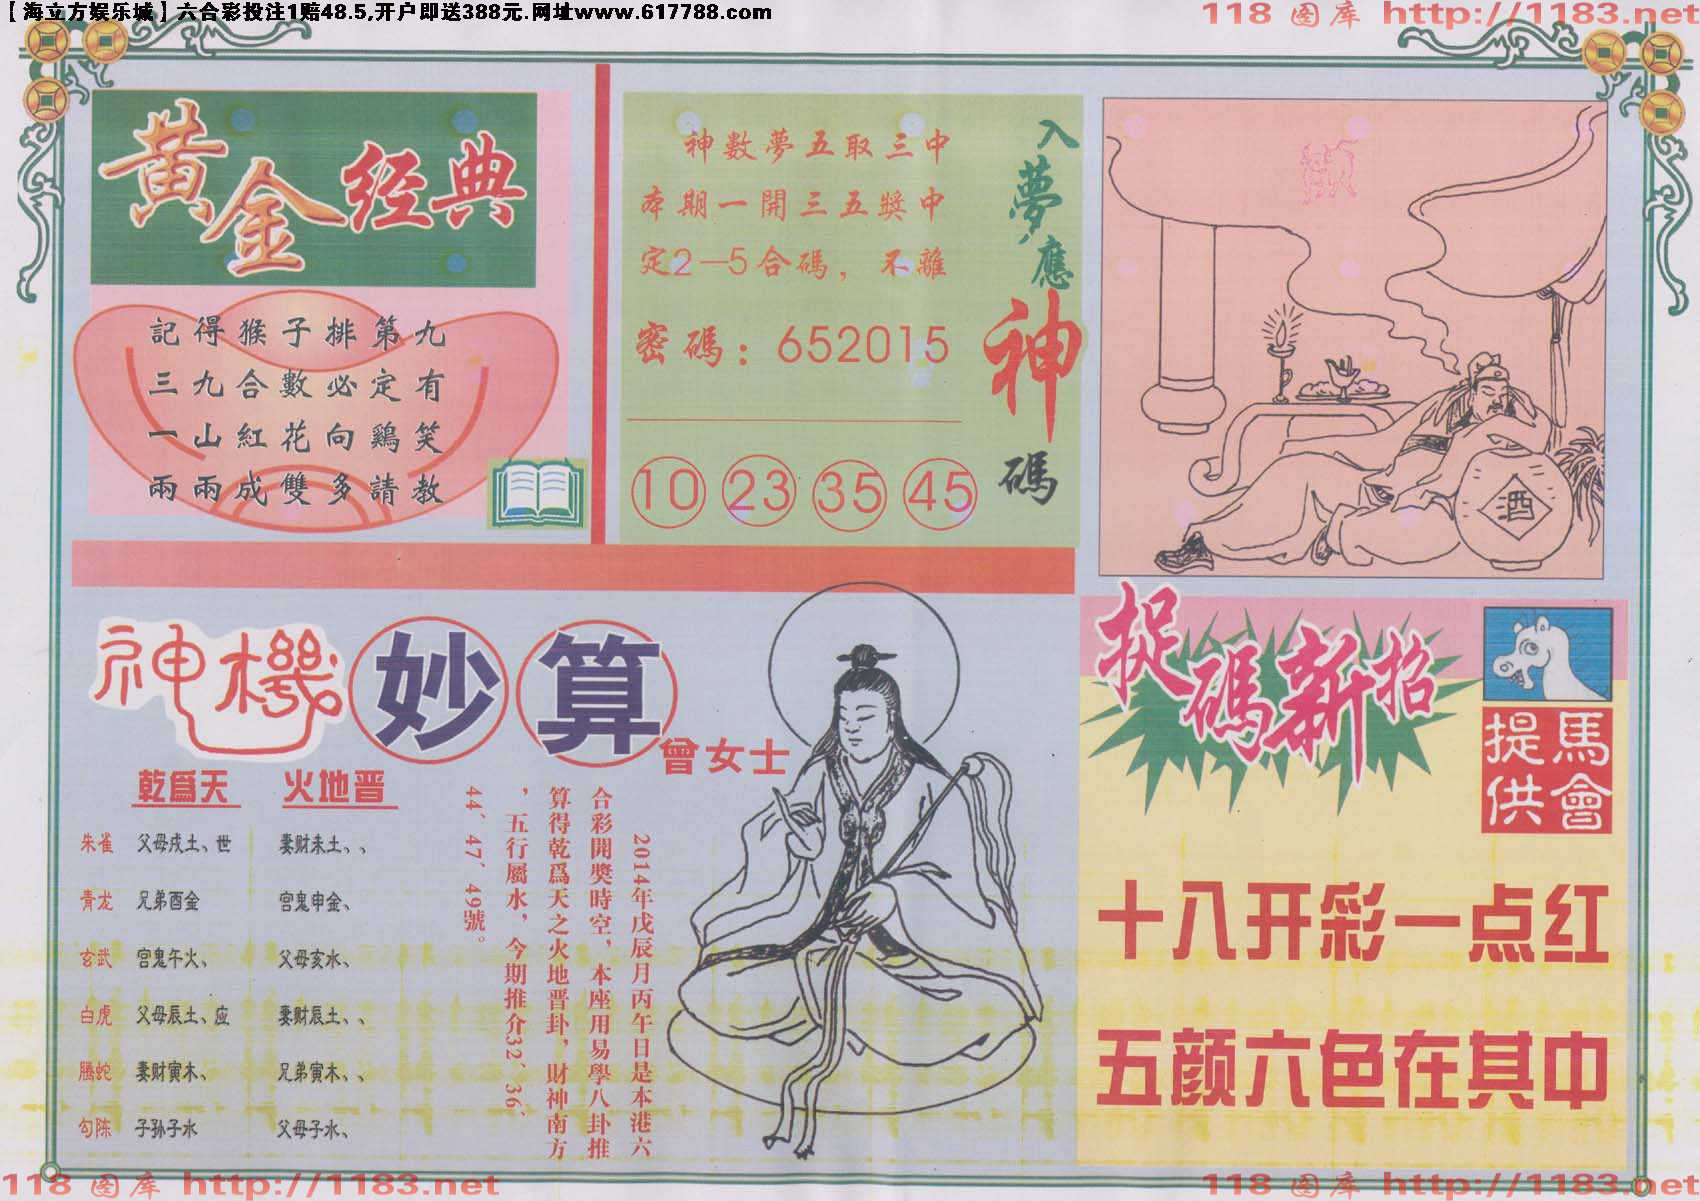 【海立方娱乐城】六合彩投注1赔48.5,开户即送388元.网址www.617788.com
118 图库 http://1183.net
黄金经典
記得猴子排第九
三九合數必定有
一山紅花向鷄笑
兩兩成雙多請教
入夢應神碼
神數夢五取三中
本期一開三五獎中
定2—5合碼，不離
密碼：652015
10 23 35 45
酒
神機妙算
曾女士
乾爲天 火地晋
朱雀 父母戌土、世 妻财未土、、
青龙 兄弟酉金 宫鬼申金、
玄武 宫鬼午火、 父母亥水、
白虎 父母辰土、应 妻财辰土、、
腾蛇 妻财寅木、 兄弟寅木、、
勾陈 子孙子水 父母子水、
2014年戊辰月丙午日是本港六
合彩開獎時空，本座用易學八卦推
算得乾爲天之火地晋卦，財神南方
，五行屬水，今期推介32、36、
44、47、49號。
捉碼新招
馬會提供
十八开彩一点红
五颜六色在其中
118 图库 http://1183.net
118 图库 http://1183.net